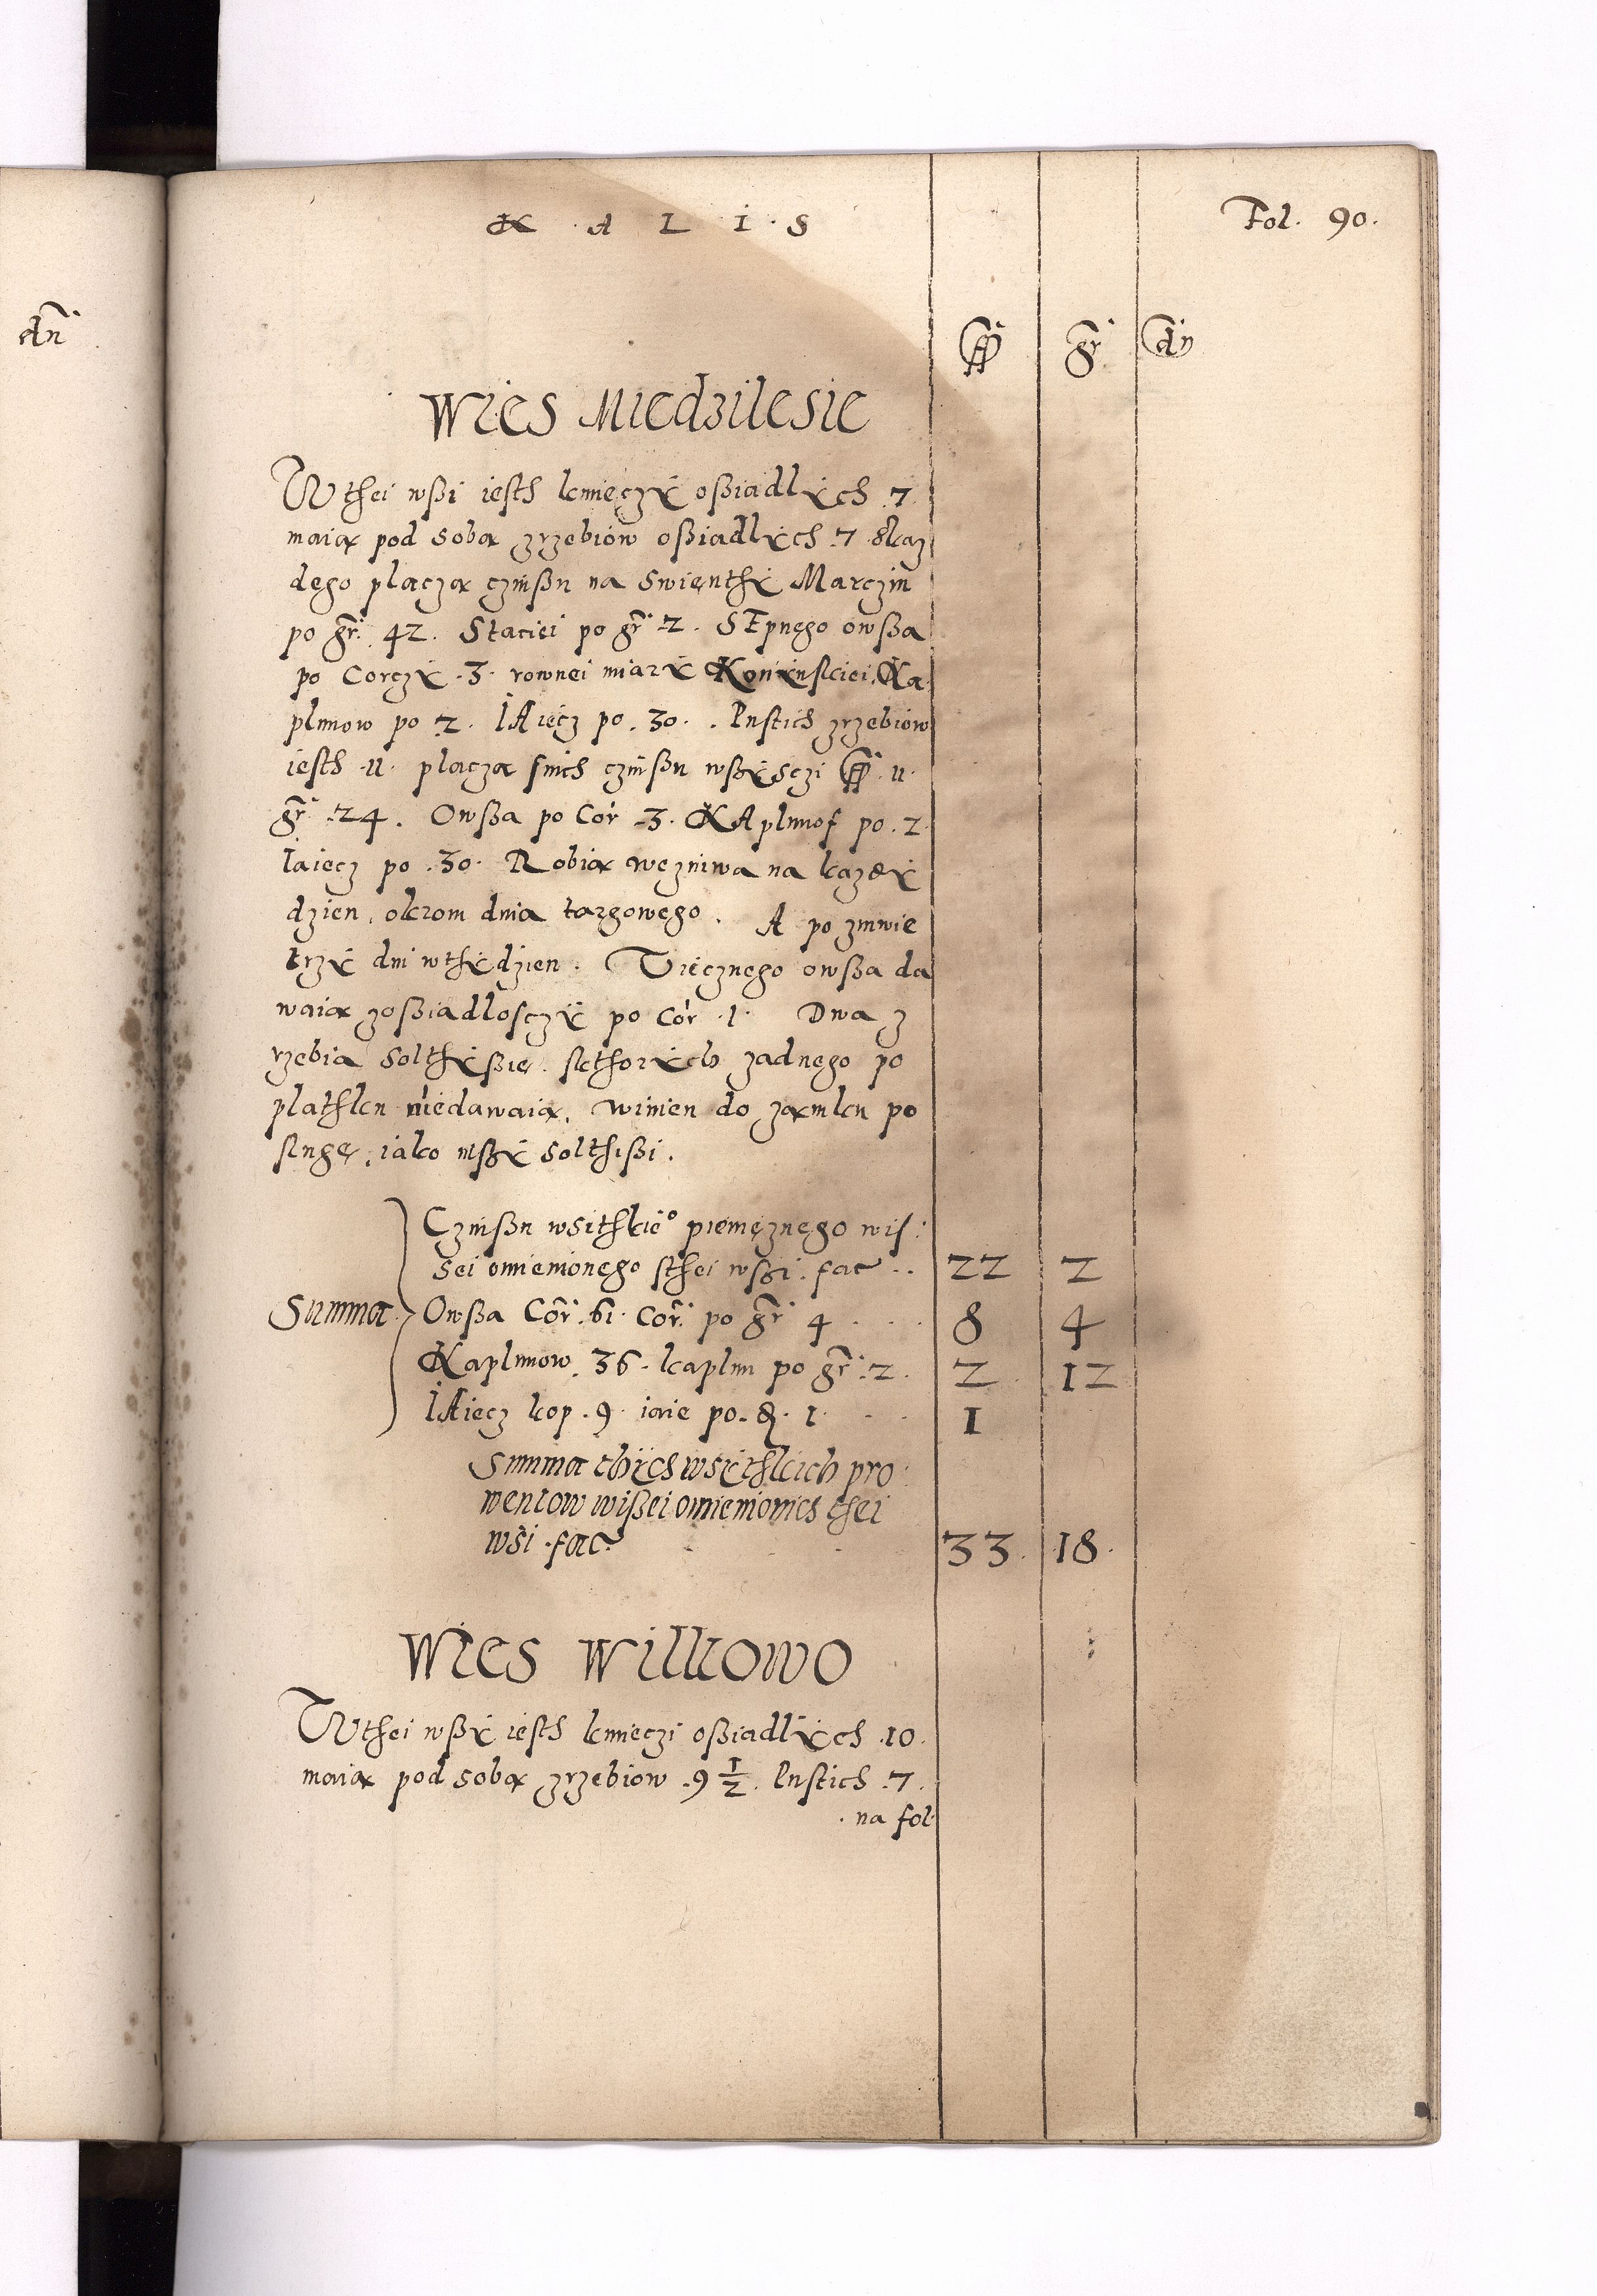 K A L I S
Fol. 90.
dn̄
gr̄ dn̄
Wies Miedzilesie
Wthei wßi iesth kmieczÿ oßiadlÿch .7.
maią pod sobą zrzebiow oßiadlÿch .7. Skaz
dego placzą czinßu na Swienthÿ Marczin
po gr̄. 42. Staciei po gr̄. 2. SEpnego owßa
po Corczÿ .3. rownei miarÿ Koninskiei. Ka
plunow po .2. IAiecz po .30. Pustich zrzebiow
iesth .11. placzą snich czinßu wßÿsczi .11.
gr̄. 24. Owßa po Cor .3. KAplunof po .2.
Iaiecz po .30. Robią węzniwa na kazdÿ
dzien, okrom dnia targowego. A po zniwie
trzÿ dni wthÿdzien. Tręcznego owßa da
waią zoßiadlosczÿ po Cor .1. Dwa z
rzebia Solthÿßie, sktorÿch zadnego po
plathku niedawaią, winien do zamku po
sluge, iako inßÿ Solthißi.
Czinßu wsithkie° pienięznego wis:
sei omienionego sthei wßi. fac .. 22 2
Summa Owßa Cor̄. 61. Cor̄. po gr̄. 4 8 4
Kaplunow. 36. kaplun po gr̄. 2. 2 12
IAiecz kop .9. iaie po .1. 1
Summa thÿch wsÿthkich pro
wentow wißei omienionich thei
wsi .fac 33. 18.
Wies Wilkowo
Wthei wßÿ iesth kmieczi oßiadlÿch .10.
maią pod sobą zrzebiow .9 1/2. Pustich .7.
. na fol.